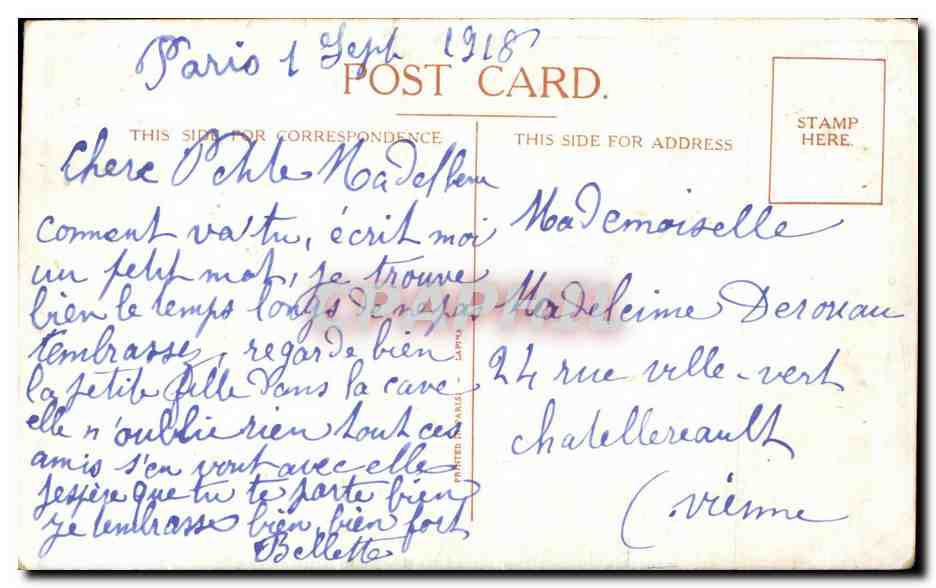 Paris 1 Sept 1918
POST CARD.
THIS SIDE FOR CORRESPONDENCE
THIS SIDE FOR ADDRESS
STAMP
HERE.
Chere Petite Madelleine
comment va tu, écrit moi
un petit mot, je trouve
bien le temps longs de ne pas
t'embrasser, regarde bien
la petite fille dans la cave
elle n'oublie rien tout ces
amis s'en vont avec elle
j'espère que tu te porte bien
je t'embrasse bien bien fort
Bellette
PRINTED IN PARIS. - LAPINA
Mademoiselle
Madeleine Derouau
24 rue ville-vert
Chatellereault
(vienne